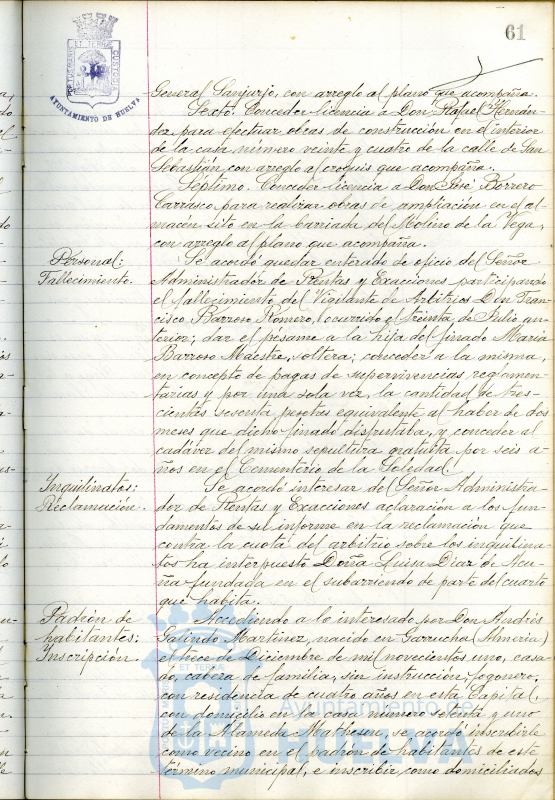 61
AYUNTAMIENTO DE HUELVA
General Sanjurjo, con arreglo al plano que acompaña.
Sexto. Conceder licencia a Don Rafael Hernán-
dez para efectuar obras de construcción en el interior
de la casa número veinte y cuatro de la calle de San
Sebastián, con arreglo al croquis que acompaña.
Séptimo. Conceder licencia a Don José Borrero
Carrasco, para realizar obras de ampliación en el al-
macén sito en la barriada del Molino de la Vega,
con arreglo al plano que acompaña.
Personal:
Fallecimiento.
Se acordó quedar enterado de oficio del Señor
Administrador de Rentas y Exacciones participando
el fallecimiento del Vigilante de Arbitrios Don Fran-
cisco Barroso Romero, ocurrido el treinta de Julio an-
terior; dar el pésame a la hija del finado María
Barroso Maestre, soltera; conceder a la misma,
en concepto de pagas de supervivencias reglamen-
tarias y por una sola vez, la cantidad de tres-
cientas sesenta pesetas equivalente al haber de dos
meses que dicho finado disfrutaba, y conceder al
cadáver del mismo sepultura gratuita por seis a-
ños en el Cementerio de la Soledad.
Inquilinatos:
Reclamación.
Se acordó interesar del Señor Administra-
dor de Rentas y Exacciones aclaración a los fun-
damentos de su informe en la reclamación que
contra la cuota del arbitrio sobre los inquilina-
tos ha interpuesto Doña Luisa Díaz de Acu-
ña fundada en el subarriendo de parte del cuarto
que habita.
Padrón de
habitantes:
Inscripción.
Accediendo a lo interesado por Don Andrés
Galindo Martínez, nacido en Garrucha (Almería)
el trece de Diciembre de mil novecientos uno, casa-
do, cabeza de familia, sin instrucción, fogonero,
con residencia de cuatro años en esta Capital,
con domicilio en la casa número setenta y uno
de la Alameda Mathesen, se acordó inscribirle
como vecino en el padrón de habitantes de este
término municipal, e inscribir como domiciliados
Ayuntamiento de
HUELVA